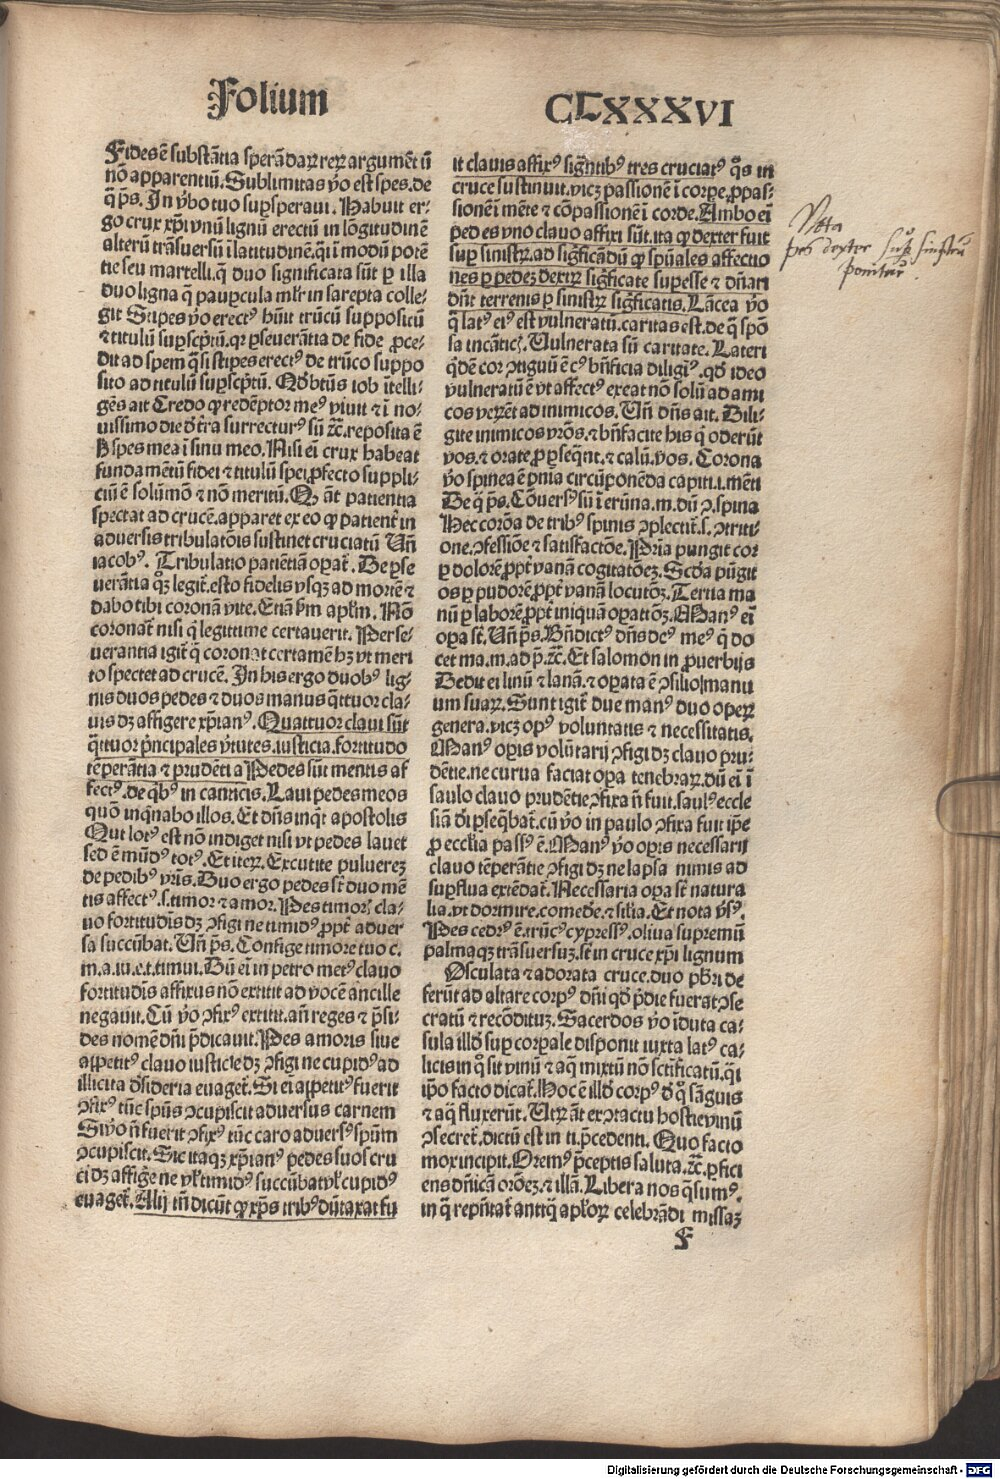 Folium
CLXXXVI
Fides ē substātia sperādaꝝ reꝝ argumēt ū
nō apparentiū. Sublimitas ꝟo est spes. de
q̄ p̄s. In ꝟbo tuo suꝑsperaui. Habuit er⸗
go crux xp̄i vnū lignū erectū in lōgitudinē
alterū trāsuersū ī latitudinē. q̄i ī modū potē
tie seu martelli. q̄ duo significata sūt ꝑ illa
duo ligna q̄ pauꝑcula ml̄r in sarepta colle⸗
git Stipes ꝟo erectꝰ hūit trūcū suppositū
⁊ titulū suꝑscp̄tū. qꝛ ꝑseuerātia de fide ꝓce⸗
dit ad spem q̄si stipes erectꝰ de trūco suppo
sito ad titulū suꝑscp̄tū. Qd̓ btūs iob ītelli⸗
gēs ait Credo ꝙ redēptor meꝰ viuit ⁊ ī no⸗
uissimo die d̓ t̄ra surrecturꝰ sū ⁊c̄. reposita ē
h̓ spes mea ī sinu meo. Nisi ei̅ crux habeat
fundamētū fidei ⁊ titulū spei ꝓfecto suppli⸗
ciū ē solūmō ⁊ nō meritū. Qꝙ āt patientia
spectat ad crucē. apparet ex eo ꝙ patient̄ in
aduersis tribulatōis sustinet cruciatū Un̄
iacobꝰ. Tribulatio patiētiā oꝑat̄. De ꝑse
uerātia qͦꝫ legit̄. esto fidelis vsqꝫ ad mortē ⁊
dabo tibi coronam vite. Etiā ẜm apl̄m. Nō
coronat̄ nisi q̇ legittime certauerit. Perse⸗
uerantia igit̄ q̄ coronat certamē hꝫ vt meri
to spectet ad crucē. In his ergo duobꝰ lig⸗
nis duos pedes ⁊ duos manus q̄ttuor cla⸗
uis dꝫ affigere xp̄ianꝰ. Quattuor claui sūt
q̄ttuor p̄ncipales ꝟtutes. iusticia. fortitudo
tēperātia ⁊ prudētia Pedes sūt mentis af
fectꝰ. de qͥbꝰ in canticis. Laui pedes meos
quō inqͥnabo illos. Et dn̄s inqͥt apostolis
Qui lotꝰ est nō indiget nisi vt pedes lauet
sed ē mūdꝰ totꝰ. Et iteꝝ. Excutite puluereꝫ
de pedibꝰ vr̄is. Duo ergo pedes st̄ duo mē
tis affectꝰ. s. timor ⁊ amor. Pes timorꝭ cla⸗
uo fortitudīs dꝫ ꝯfigi ne timidꝰ ꝓpt̄ aduer
sa succūbat. Un̄ p̄s. Confige timore tuo c.
m. a. iu. e. t. timui. Dū ei̅ in petro metꝰ clauo
fortitudīs affixus nō extitit ad vocē ancille
negauit. Cū ꝟo ꝯfixꝰ extitit. an̄ reges ⁊ p̄si⸗
des nomē dn̄i p̄dicauit. Pes amoris siue
appetitꝰ clauo iusticie dꝫ ꝯfigi ne cupidꝰ ad
illicita d̓sideria euaget̄. Si ei̅ appetitꝰ fuerit
ꝯfixꝰ tūc spūs ꝯcupiscit aduersus carnem
Si ꝟo n̄ fuerit ꝯfixꝰ tūc caro aduersꝰ spūm
ꝯcupiscit. Sic itaqꝫ xp̄ianꝰ pedes suos cru
ci dꝫ affigere ne vl̓ timidꝰ succūbat vl̓ cupidꝰ
euaget̄. Alij tn̄ dicūt ꝙ xp̄s tribꝰ dūtaxat fu
it clauis affixꝰ sigñtibꝰ tres cruciatꝰ qͦs in
cruce sustinuit. vicꝫ passionē ī corꝑe. ꝓpas⸗
sionē ī mēte ⁊ cōpassionē ī corde. Ambo ei̅
pedes vno clauo affixi sūt. ita ꝙ dexter fuit
suꝑ sinistꝝ. ad sigficādū ꝙ spūales affectio
nes ꝑ pedeꝫ dextꝝ sigficate supesse ⁊ dn̄ari
dn̄t terrenis ꝑ sinistꝝ sigficatis. Lācea ꝟo
q̄ latꝰ eiꝰ est vulneratū. caritas est. de q̄ spō
sa in cāticꝭ. Vulnerata sū caritate. Lateri
qͥdē cor ꝯtiguū ē cꝰ bn̄ficia diligit̄. qd̓ ideo
vulneratū ē vt affectꝰ exeat nō solū ad ami
cos veꝝet̄ ad inimicos. Un̄ dn̄s ait. Dili⸗
gite inimicos vr̄os. ⁊ bn̄facite his qͥ oderūt
vos. ⁊ orate ꝓ ꝑseqn̄t. ⁊ calū. vos. Corona
ꝟo spinea ē pn̄ia circūponēda capiti. i. mēti
De q̄ p̄s. Cōuersꝰ sū ī erūna. m. dū ꝯ. spina
Hec corōa de tribꝰ spinis ꝯplectit̄. s. ꝯtriti⸗
one. ꝯfessiōe ⁊ satisfactōe. Prīa pungit cor
ꝑ dolorē ꝓpt̄ vanā cogitatōeꝫ. Scd̓a pūgit
os ꝑ pudorē ꝓpt̄ vanā locutōꝫ. Tertia ma
nū ꝑ laborē ꝓpt̄ iniquā oꝑatiōꝫ. Manꝰ ei̅
oꝑa st̄. Un̄ p̄s. Bn̄dictꝰ dn̄s dꝰs meꝰ q̇ do
cet ma. m. ad p̄. ⁊c̄. Et salomon in ꝓuerbijs
Dedit ei linū ⁊ lanā. ⁊ oꝑata ē ꝯsilio manu
um suaꝝ. Sunt igit̄ due manꝰ duo opeꝝ
genera. vicꝫ opꝰ voluntatis ⁊ necessitatis.
Manꝰ oꝑis volūtarij ꝯfigi dꝫ clauo pru⸗
dētie. ne curua faciat oꝑa tenebraꝝ. dū ei̅ ī
saulo clauo prudētie ꝯfixa n̄ fuit. saulꝰ eccle
siā di ꝑseqͥbat̄. cū ꝟo in paulo ꝯfixa fuit ip̄e
ꝓ ecclia passꝰ ē. Manꝰ ꝟo oꝑis necessarij
clauo tēperātie ꝯfigi dꝫ ne lapsa nimis ad
suꝑflua extēdat̄. Necessaria oꝑa st̄ natura
lia. vt dormire. comede̓. ⁊ sil̓ia. Et nota ꝟsꝰ.
Pes cedrꝰ ē. trūcꝰ cypressꝰ. oliua supremū
palmaqꝫ trāsuersuꝫ. st̄ in cruce xp̄i lignum
Osculata ⁊ adorata cruce. duo pb̓ri de
ferūt ad altare corpꝰ dn̄i qd̓ p̄die fuerat ꝯse
cratū ⁊ recōdituꝫ. Sacerdos ꝟo īduta ca⸗
sula illd̓ suꝑ corꝑale disponit iuxta latꝰ ca⸗
licis in qͦ sit vinū ⁊ aq̄ mixtū nō sc̄tificatū. q̄i
ip̄o facto dicat̄. Hoc ē illd̓ corpꝰ d̓ qͦ sāguis
⁊ aq̄ fluxerūt. Utꝝ āt ex ꝯtactu hostie vinū
ꝯsecret̄. dictū est in ti. p̄cedenti. Quo facto
mox incipit. Oremꝰ p̄ceptis saluta. ⁊c̄. ꝑfici
ens dn̄icā orōeꝫ. ⁊ illā. Libera nos q̄sumꝰ.
in q̄ rep̄ntat̄ antiq̄ apl̓oꝝ celebrādi missaꝫ
F
Nota
pes dexter suꝑ sinistrū
ponitur.
Digitalisierung gefördert durch die Deutsche Forschungsgemeinschaft - DFG